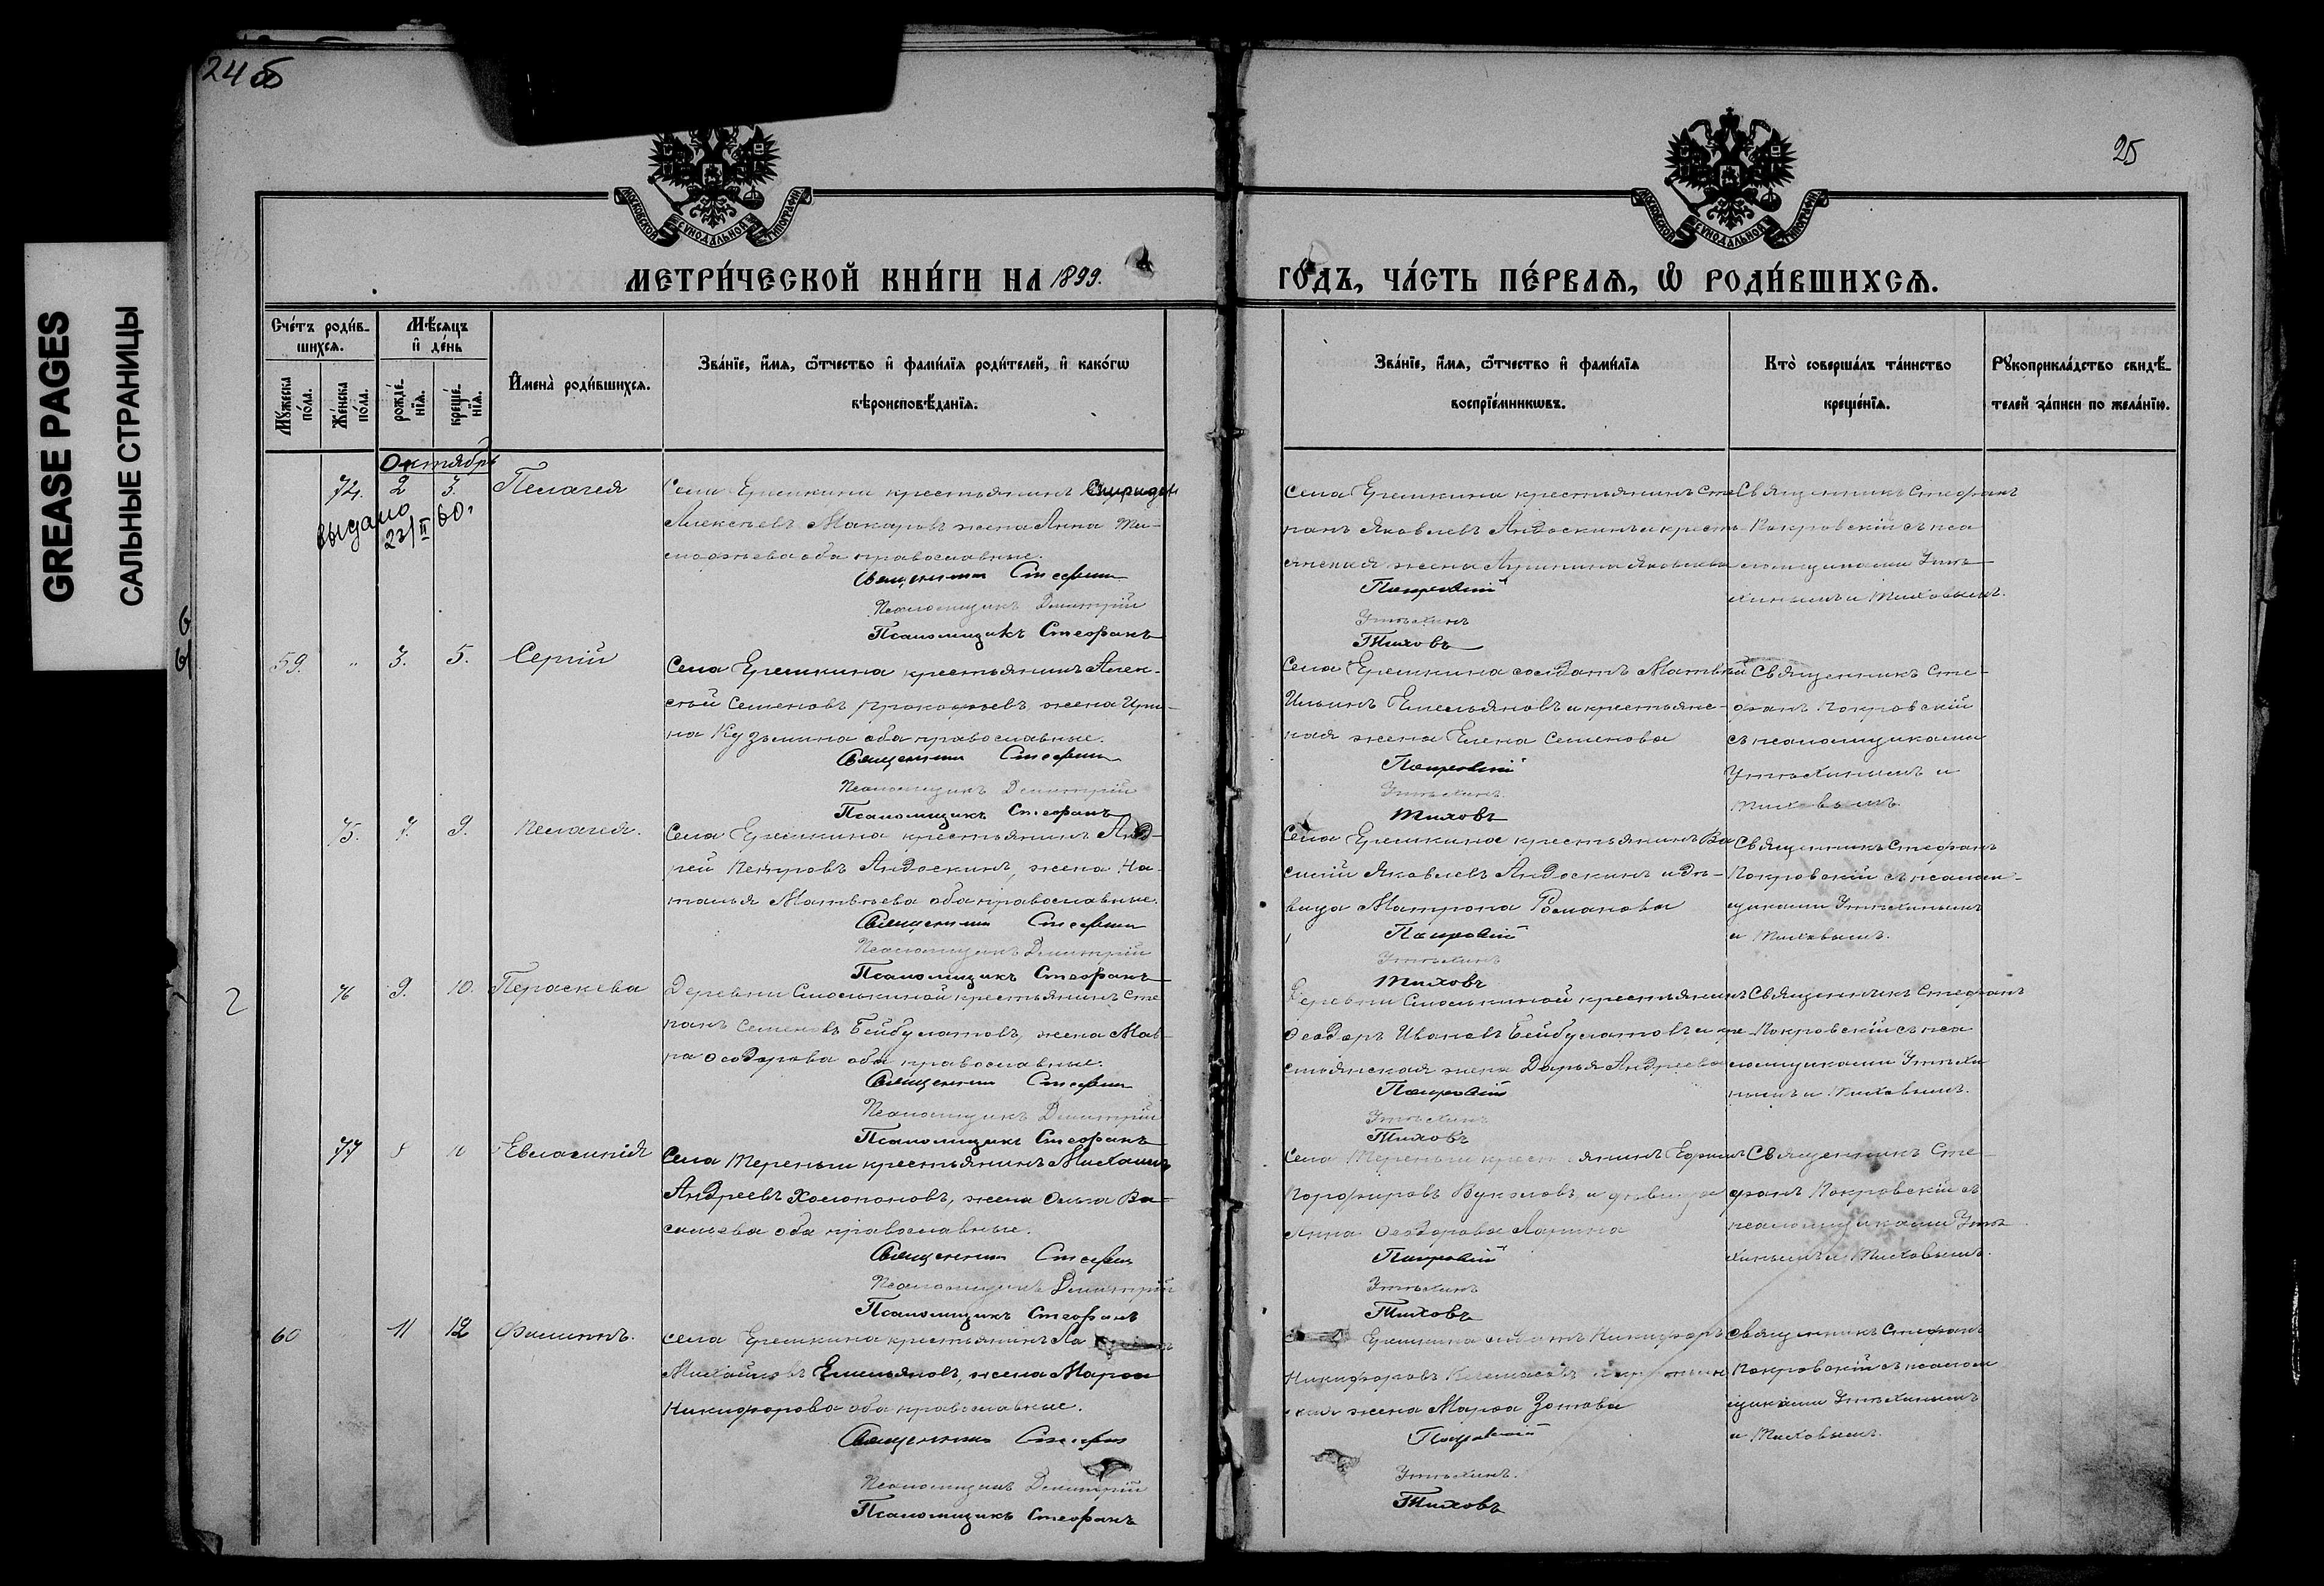 24 об
25
GREASE PAGES
САЛЬНЫЕ СТРАНИЦЫ
МОСКОВСКОЙ СѴНОДАЛЬНОЙ ТИПОГРАФІИ
МОСКОВСКОЙ СѴНОДАЛЬНОЙ ТИПОГРАФІИ
МЕТРИ́ЧЕСКОЙ КНИ́ГИ НА 1899.
ГО́ДЪ, ЧА́СТЬ ПЕ́РВАѦ, Ѡ҆ РОДИ́ВШИХСѦ.
Сче́тъ роди́в-
шихсѧ.
Мꙋ́жеска по́ла.
Же́нска по́ла.
Мѣ́сѧцъ
и҆ де́нь
рожде́нїѧ.
креще́нїѧ.
И҆мена̀ роди́вшихсѧ.
Зва́нїе, и҆́мѧ, ѻ҆́тчество и҆ фами́лїѧ роди́телей, и҆ како́гѡ
вѣроисповѣ́данїѧ.
Зва́нїе, и҆́мѧ, ѻ҆́тчество и҆ фами́лїѧ
воспрїе́мникѡвъ.
Кто̀ соверша́лъ та́инство
креще́нїѧ.
Рꙋкоприкла́дство свидѣ́-
телей за́писи по жела́нїю.
Октябрь
74. 2 3. Пелагея
выдано
23/II 60.
Села Еремкина крестьянинъ Спиридонъ
Алексѣевъ Макаровъ жена Анна Ти-
моѳеева оба православные.
Священникъ Стефанъ
Псаломщикъ Димитрій
Псаломщикъ Стефанъ
Села Еремкина крестьянинъ Сте-
панъ Яковлевъ Андоскинъ и кресть-
янская жена Яковлева
Покровскій
Утѣхинъ
Тиховъ
Священникъ Стефанъ
Покровскій съ пса
ломщиками Утѣ-
хинымъ и Тиховымъ.
59. " 3. 5. Сергій
Села Еремкина крестьянинъ Алек-
сѣй Семеновъ Прокофьевъ, жена Ири-
на Кузьмина оба православные.
Священникъ Стефанъ
Псаломщикъ Димитрій
Псаломщикъ Стефанъ
Села Еремкина солдатъ Матвѣй
Ильинъ Емельяновъ и крестьянс-
кая жена Елена Семенова
Покровскій
Утѣхинъ.
Тиховъ
Священникъ Сте-
фанъ Покровскій
съ псаломщиками
Утѣхинымъ и
Тиховымъ.
75. 7. 9. Пелагея.
Села Еремкина крестьянинъ Анд-
рей Петровъ Андоскинъ, жена На-
талья Матвѣева оба православные.
Священникъ Стефанъ
Псаломщикъ Димитрій
Псаломщикъ Стефанъ
Села Еремкина крестьянинъ Ва
силій Яковлевъ Андоскинъ и дѣ-
вица Матрона Романова
Покровскій
Утѣхинъ
Тиховъ
Священникъ Стефанъ
Покровскій съ псалом-
щиками Утѣхинымъ
и Тиховымъ.
2
76 9. 10. Пераскева
Деревни Смолькиной крестьянинъ Сте
панъ Семеновъ Бейбулатовъ, жена Мав-
ра Ѳеодорова оба православные.
Священникъ Стефанъ
Псаломщикъ Димитрій
Псаломщикъ Стефанъ
Деревни Смолькиной крестьянинъ
Ѳеодоръ Ивановъ Бейбулатовъ и кре
стьянская жена Дарья Андреева
Покровскій
Утѣхинъ
Тиховъ
Священникъ Стефанъ
Покровскій съ пса
ломщиками Утѣхи
нымъ и Тиховымъ.
77 10 Евлампія
Села Тереньги крестьянинъ Михаилъ
Андреевъ Холопоновъ, жена Ольга Ва-
сильева оба православные.
Священникъ Стефанъ
Псаломщикъ Димитрій
Псаломщикъ Стефанъ
Села Тереньги крестьянинъ Ефимъ
Порфировъ Вуколовъ и дѣвица
Анна Ѳеодорова Лапина
Покровскій
Утѣхинъ
Тиховъ
Священникъ Сте-
фанъ Покровскій съ
псаломщиками Утѣ
хинымъ и Тиховымъ.
60 11 12 Филиппъ.
Села Еремкина крестьянинъ
Михайловъ Емельяновъ, жена Марѳа
Никифорова оба православные.
Священникъ Стефанъ
Псаломщикъ Димитрій
Псаломщикъ Стефанъ
Еремкина солдатъ Никифоръ
Никифоровъ
жена Марѳа Зотова
Покровскій
Утѣхинъ.
Тиховъ
Священникъ Стефанъ
Покровскій съ псалом
щиками Утѣхинымъ
и Тиховымъ.